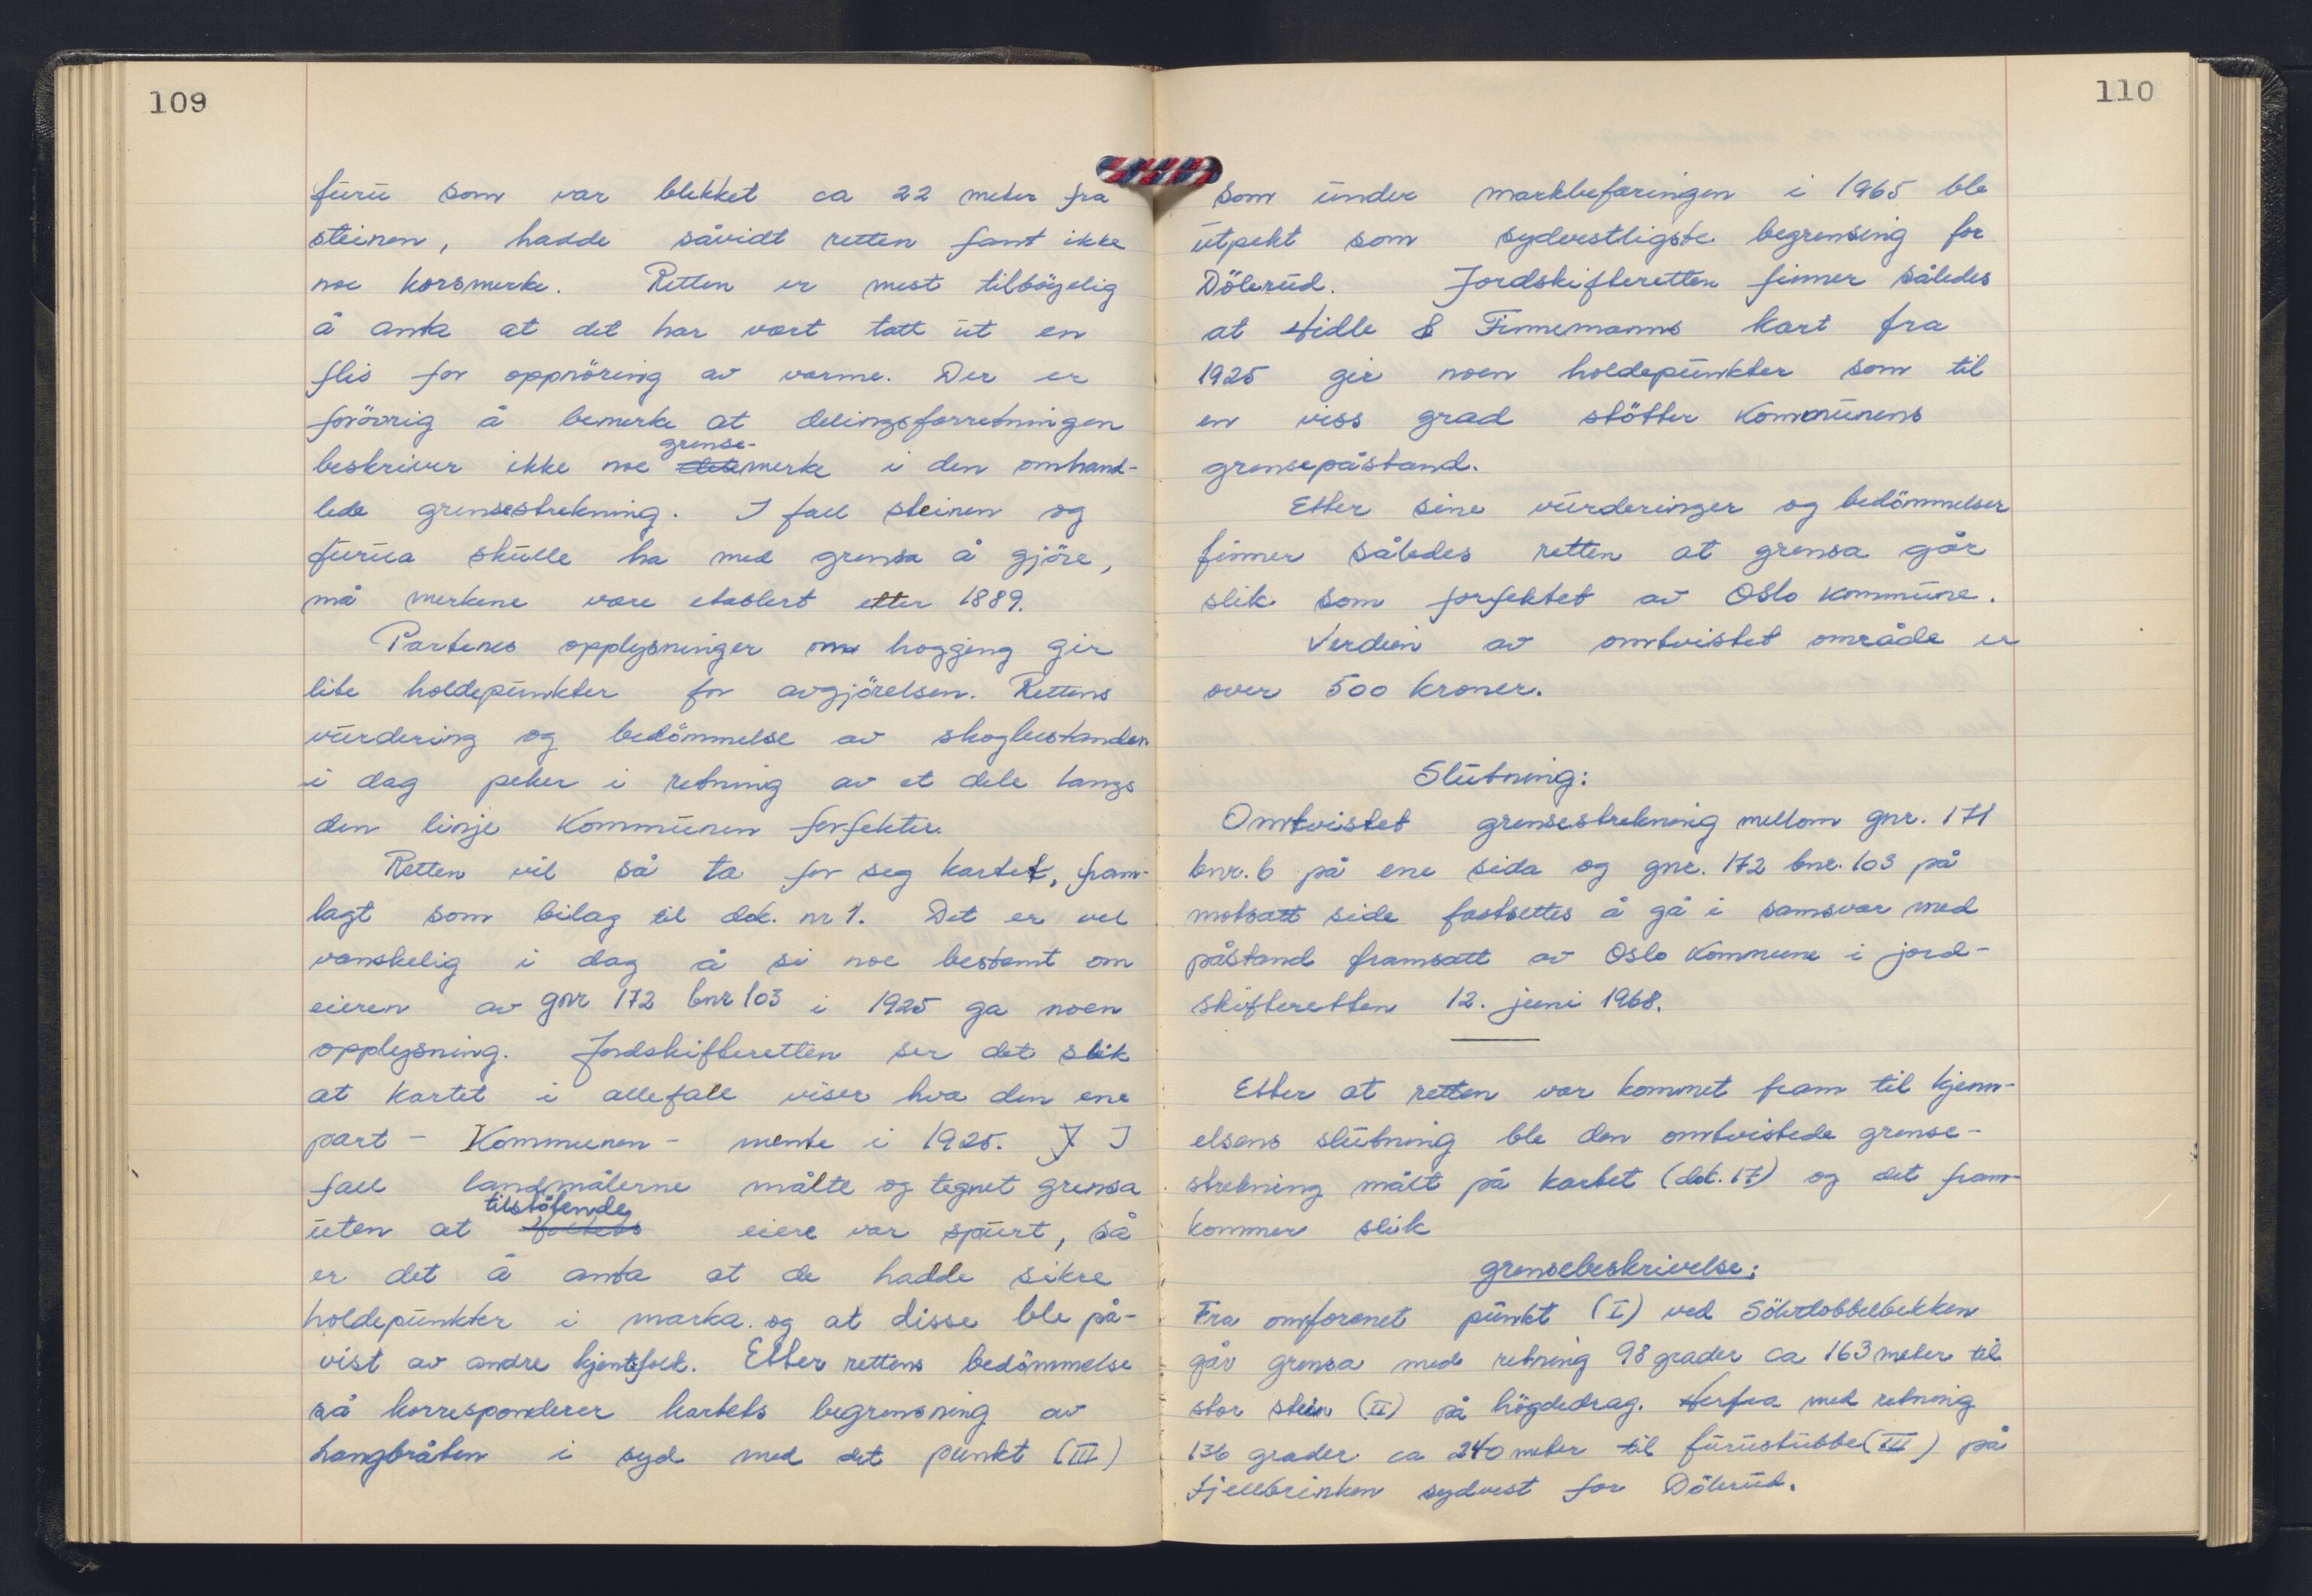 109
furu som var blikket ca 22 meter fra
steinen, hadde såvidt retten fant ikke
noe korsmerke. Retten er mest tilböyelig
å anta at det har vært tatt ut en
flis for oppnöring av varme. Der er
forövrig å bemerke at delingsforretningen
grense-
beskriver ikke noe dele merke i den omhand-
lede grensestrekning. I fall steinen og
furua skulle ha med grensa å gjöre,
må merkene være etablert etter 1889.
Partenes opplysninger om hogging gir
lite holdepunkter for avgjörelsen. Rettens
vurdering og bedömmelse av skogbestanden
i dag peker i retning av et dele langs
den linje Kommunen forfekter.
Retten vil så ta for seg kartet, fram-
lagt som bilag til dok. nr 1. Det er vel
vanskelig i dag å si noe bestemt om
eieren av gnr 172 bnr 103 i 1925 ga noen
opplysning. Jordskifteretten ser det slik
at kartet i allefall viser hva den ene
part - Kommunen - mente i 1925. I
fall landmålerne målte og tegnet grensa
tilstötende
uten at eiere var spurt, så
er det å anta at de hadde sikre
holdepunkter i marka og at disse ble på-
vist av andre kjentfolk. Etter rettens bedömmelse
så korresponderer kartets begrensning av
Langbråten i syd med det punkt (III)
110
som under markbefaringen i 1965 ble
utpekt som sydvestligste begrensing for
Dölerud. Jordskifteretten finner således
at Hidle & Finnemanns kart fra
1925 gir noen holdepunkter som til
en viss grad stötter Kommunens
grensepåstand.
Etter sine vurderinger og bedömmelser
finner således retten at grensa går
slik som forfektet av Oslo kommune.
Verdien av omtvistet område er
over 500 kroner.
Slutning:
Omtvistet grensestrekning mellom gnr. 171
bnr. 6 på ene sida og gnr. 172 bnr. 103 på
motsatt side fastsettes å gå i samsvar med
påstand framsatt av Oslo Kommune i jord-
skifteretten 12. juni 1968.
Etter at retten var kommet fram til kjenn-
elsens slutning ble den omtvistede grense-
strekning målt på kartet (dok. 17) og det fram-
kommer slik
grensebeskrivelse:
Fra omforenet punkt (I) ved Sölvdobbelbekken
går grensa med retning 98 grader ca 163 meter til
stor stein (II) på högdedrag. Herfra med retning
136 grader ca 240 meter til furustubbe (III) på
Fjellbrinken sydvest for Dölerud.